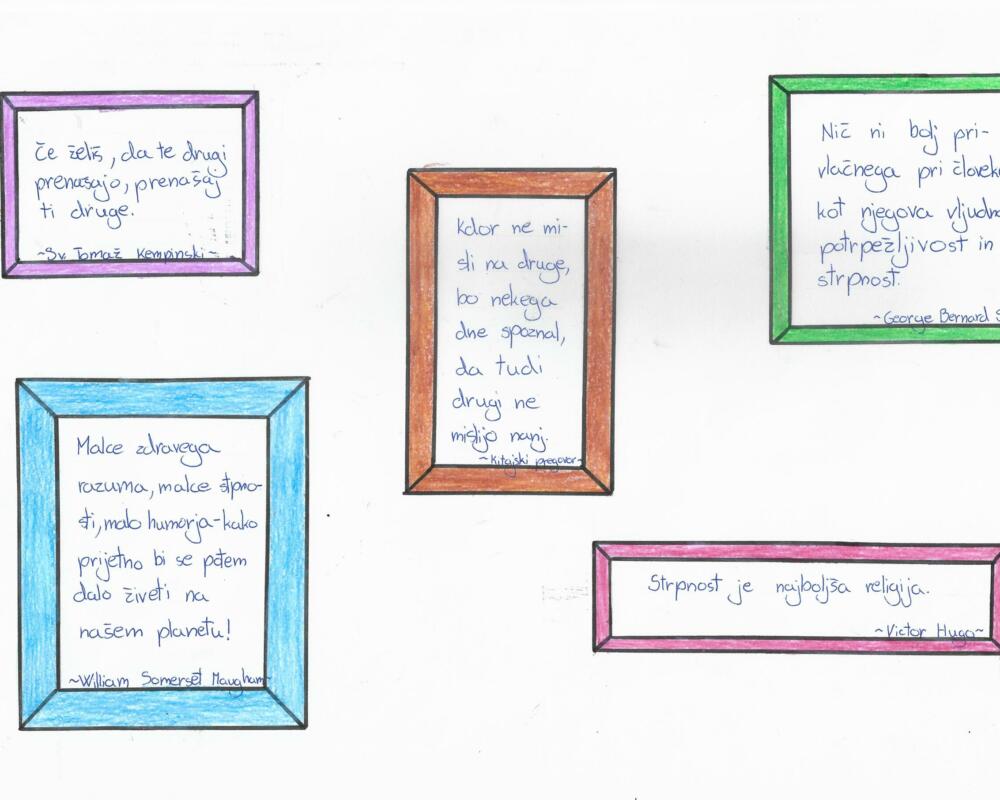 Če želiš, da te drugi
prenašajo, prenašaj
ti druge.
~Sv. Tomaž Kempinski~
Kdor ne mi-
sli na druge,
bo nekega
dne spoznal,
da tudi
drugi ne
mislijo nanj.
~Kitajski pregovor~
Nič ni bolj pri-
vlačnega pri
kot njegova
potrpežljivost in
strpnost.
~George Bernard
Malce zdravega
razuma, malce stpno-
sti, malo humorja-kako
prijetno bi se potem
dalo živeti na
našem planetu!
~William Somerset Maugham~
Strpnost je najboljša religija.
~Victor Hugo~